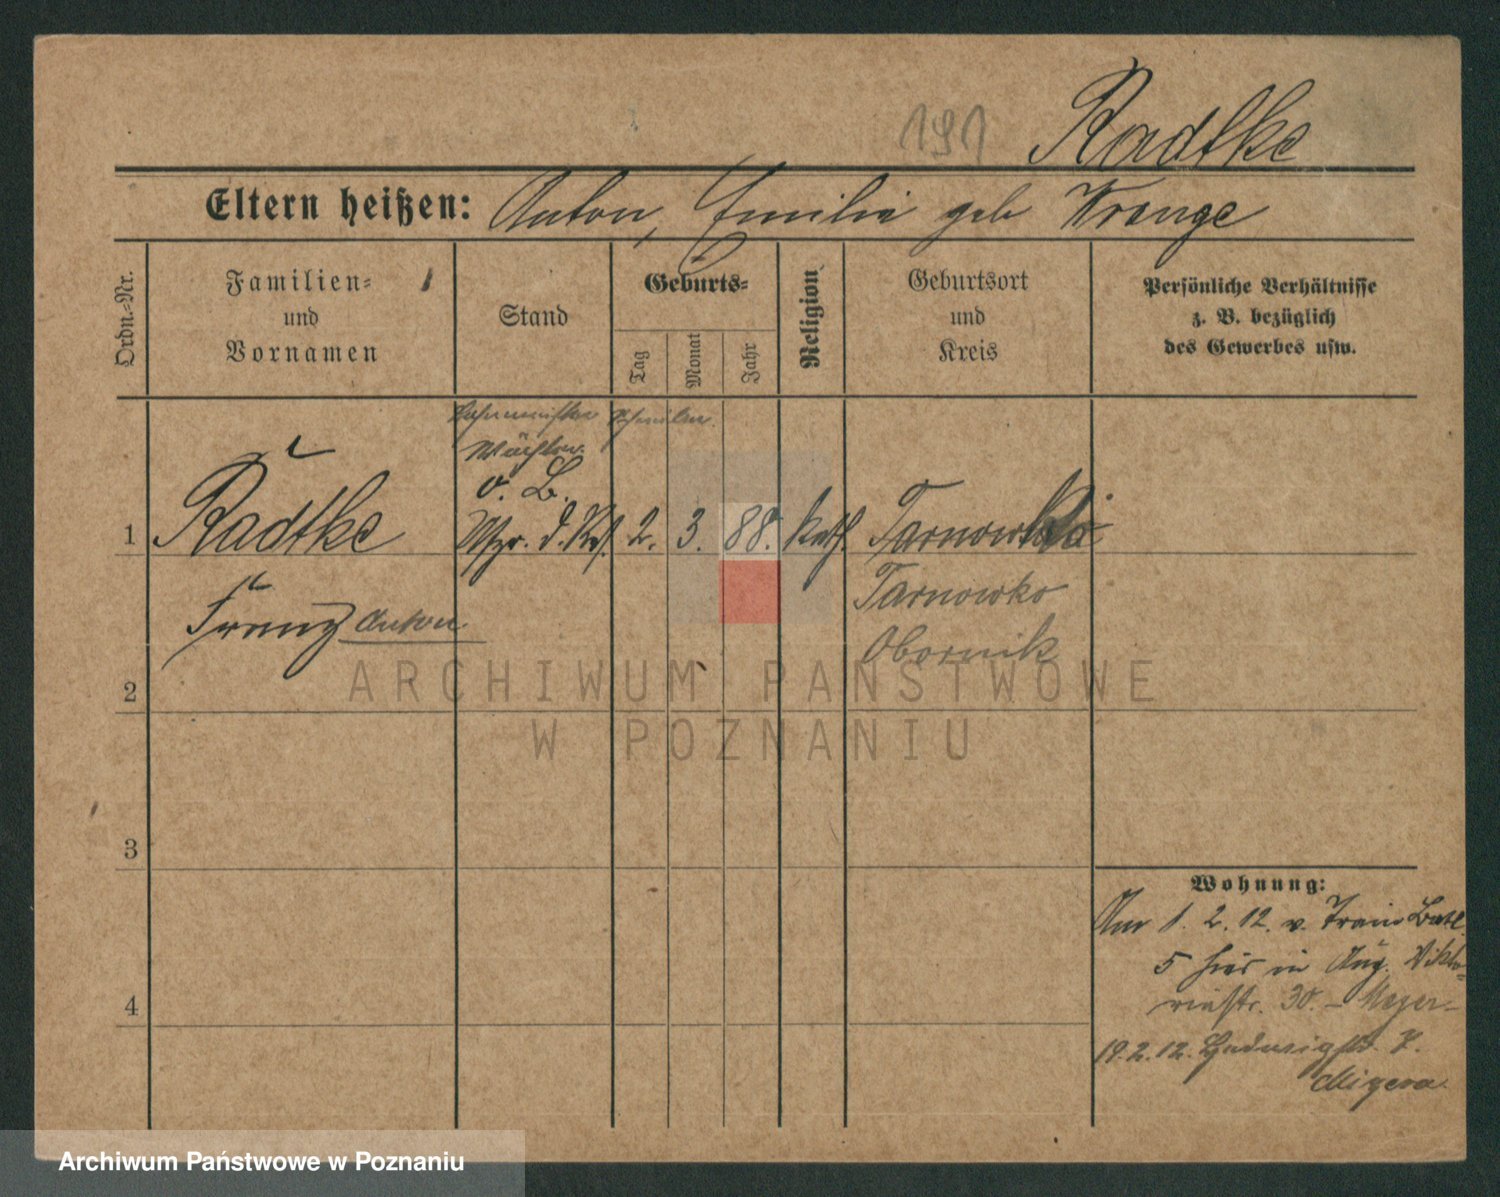 191 Radtke
Eltern heißen: Anton, Emilie geb Krenge
Ordn.-Nr.
Familien-
und
Vornamen
Stand
Geburts-
Tag
Monat
Jahr
Religion
Geburtsort
und
Kreis
Persönliche Verhältnisse
z. B. bezüglich
des Gewerbes usw.
Wächter
v. B.
1 Radtke 2. 3. 88. kath.
Tarnowko
Franz Anton
Obornik
2
ARCHIWUM PAŃSTWOWE
W POZNANIU
3
Wohnung:
Am 1. 2. 12. v. Train Batl.
5 hier in Aug. Vikto-
riastr. 30. – Meyer –
4
19.2.12. Hedwigstr. 7.
Migera
Archiwum Państwowe w Poznaniu